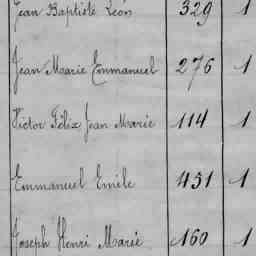 Jean Baptiste Léon 329 1
Jean Marie Emmanuel 276 1
Victor Félix Jean Marie 114 1
Emmanuel Emile 431 1
Joseph Henri Marie 160 1